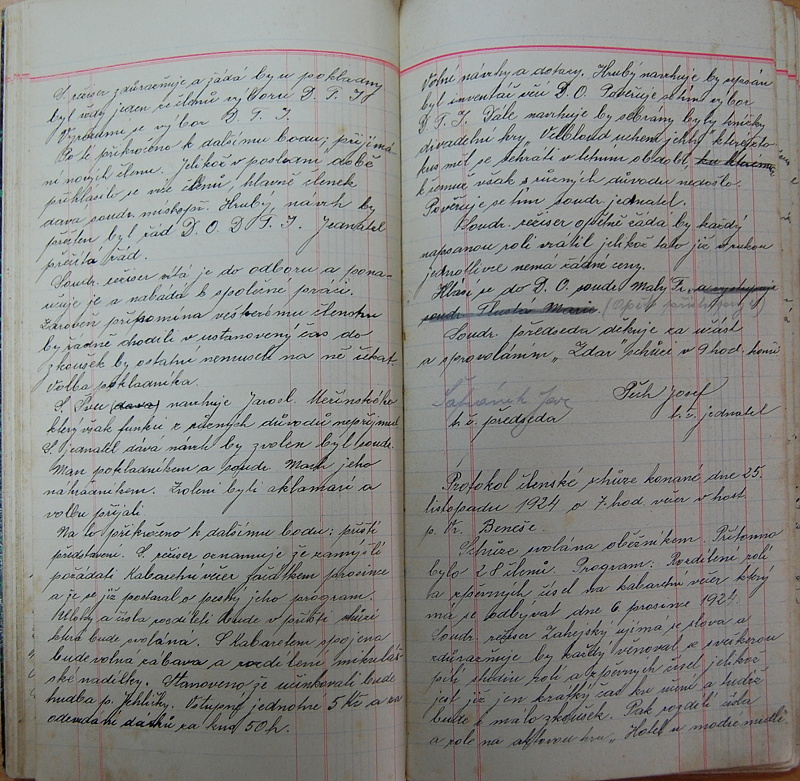 S. režiser zdůrazňuje a žádá by u pokladny
byl vždy jeden ze členů výboru D. T. J.
Vyrozumí se výbor D. T. J.
Poté přikročeno k dalšímu bodu; přijímá-
ní nových členů. Jelikož v poslední době
přihlásilo se více členů, hlavně členek
dává soudr. místopř. Hrubý, návrh by
přečten byl řád D. O. D. T. J. Jednatel
přečítá řád.
Soudr. režiser vítá je do odboru a pona-
učuje je a nabádá k společné práci.
Zároveň připomíná veškerému členstvu
by řádně chodili v ustanovený čas do
zkoušek by ostatní nemuseli na ně čekat.
Volba pokladníka.
S. (dává) navrhuje Jarosl. Meřinského
který však funkci z různých důvodů nepřijmul.
S. jednatel dává návrh by zvolen byl soudr.
Man pokladníkem a soudr. Mach jeho
náhradníkem. Zvoleni byli aklamací a
volbu přijali.
Na to přikročeno k dalšímu bodu; příští
představení. S. režiser oznamuje že zamýšlí
pořádati Kabaretní večer začátkem prosince
a je se již postaral o pestrý jeho program.
Úlohy a čísla rozdělí bude v příští schůzi
která bude svolána. S Kabaretem spojena
bude volná zábava a rozdělení mikuláš-
ské nadílky. Stanoveno je účinkovati bude
hudba p. Jehličky. Vstupné jednotné 5 Kč a za
odevzdání dárků za kus 50 h.
Volné návrhy a dotazy. Hrubý navrhuje by sepsán
byl inventář věcí D. O. Pověřuje se tím výbor
D. T. J. Dále navrhuje by sebrány byly knížky
divadelní hry „Velbloud uchem jehly" kterýžto
kus měl se sehráti v letním období, ku kterému
k čemuž však z různých důvodů nedošlo.
Pověřuje se tím soudr. jednatel.
Soudr. režiser opětně žádá by každý
napsanou roli vrátil jelikož tato již v rukou
jednotlivce nemá žádné ceny.
Hlásí se do D. O. soudr. Malý Fr. a vystupuje
soudr. Tlustá Marie. (Opět přistupuje)
Soudr. předseda děkuje za účast
a s provoláním „Zdar" schůzi v 9 hod. končí
Pech Josef
t. č. předseda t. č. jednatel
Protokol členské schůze konané dne 25.
listopadu 1924 o 7 hod. večer v host.
p. Fr. Beneše.
Schůze svolána oběžníkem. Přítomno
bylo 28 členů. Program: Rozdělení rolí
a zpěvných čísel na kabaretní večer který
má se odbývat dne 6. prosince 1924.
Soudr. režiser Zahejský ujímá se slova a
zdůrazňuje by každý věnoval se s veškerou
pílí studiu rolí a zpěvných čísel jelikož
jest již jen krátký čas ku učení a tudíž
bude i málo zkoušek. Pak rozdělí čísla
a role na aktovou hru „Hotel u modré nudle.